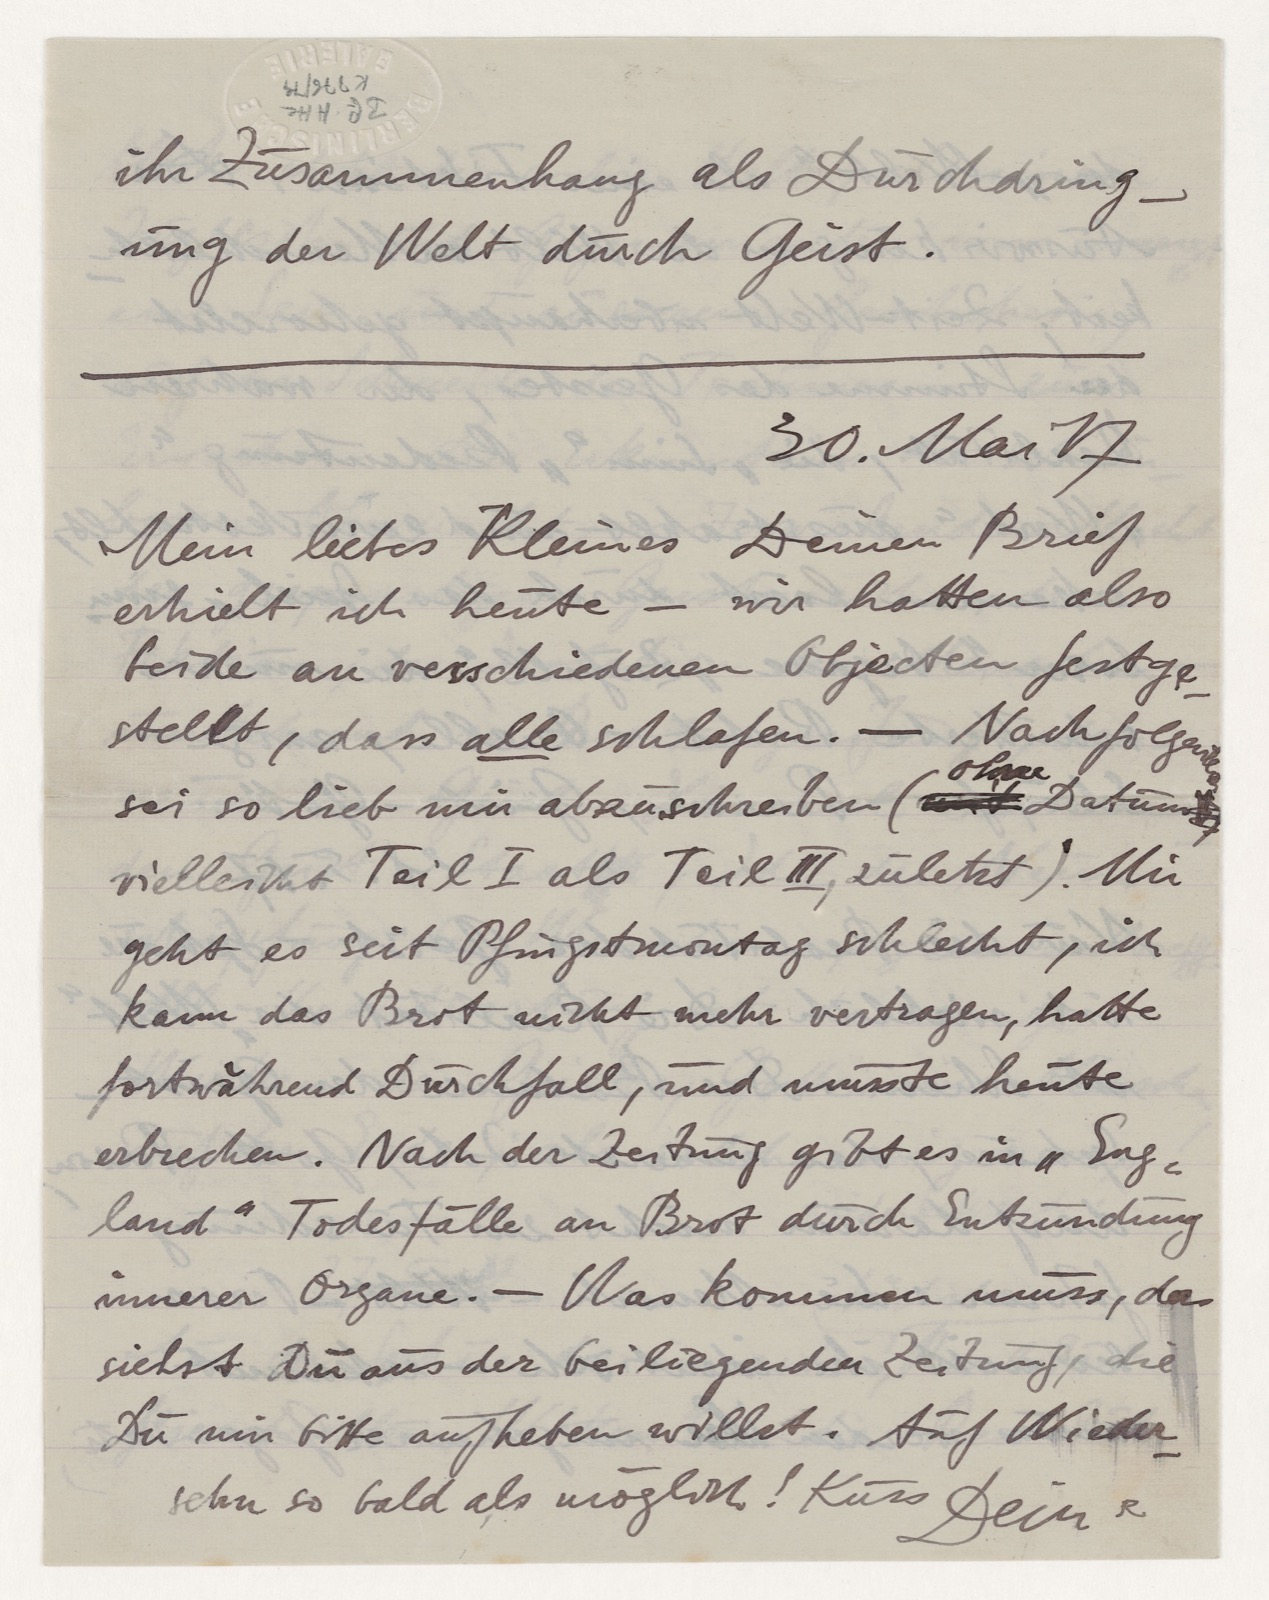 ihr Zusammenhang als Durchdring-
ung der Welt durch Geist.
30. Mai 17
Mein liebes Kleines Deinen Brief
erhielt ich heute – wir hatten also
beide an verschiedenen Objecten festge-
stellt, dass alle schlafen. — Nachfolgendes
ohne
sei so lieb mir abzuschreiben (mit Datum
vielleicht Teil I als Teil III, zuletzt). Mir
geht es seit Pfingstmontag schlecht, ich
kann das Brot nicht mehr vertragen, hatte
fortwährend Durchfall, und musste heute
erbrechen. Nach der Zeitung gibt es in „Eng-
land“ Todesfälle an Brot durch Entzündung
innerer Organe. — Was kommen muss, das
siehst Du aus der beiliegenden Zeitung, die
Du mir bitte aufheben willst. Auf Wieder-
sehn so bald als möglich! Kuss Dein R